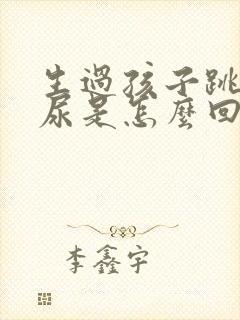 生過孩子跳
尿是怎麼回
李鑫宇